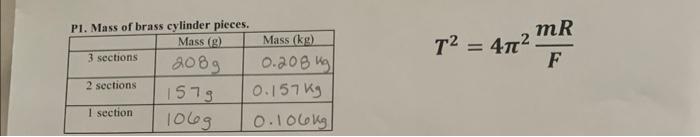 P1. Mass of brass cylinder pieces.
Mass (g) Mass (kg)
3 sections 208g 0.208 kg
2 sections 157g 0.157 kg
1 section 106g 0.106kg
T² = 4π² mR/F